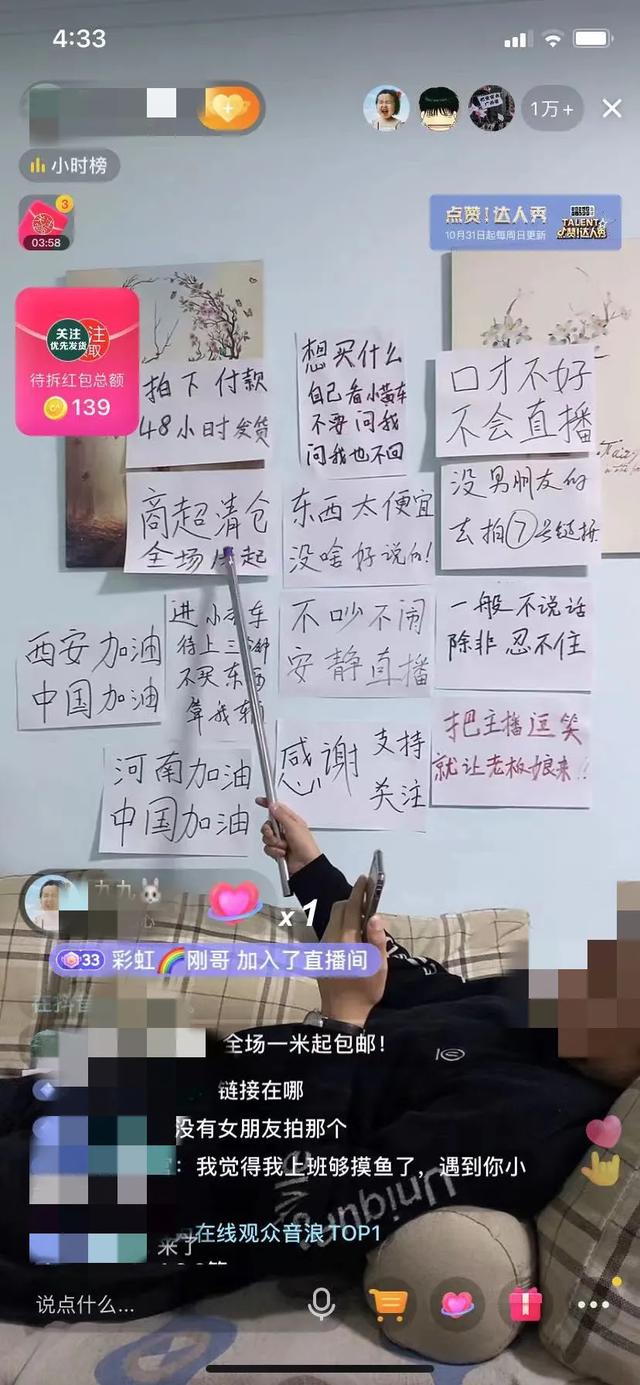 4:33
1万+
小时榜
3
03:58
点赞！达人秀
10月31日起每周日更新
TALENT
点赞!达人秀
关注
优先发货
待拆红包总额
139
拍下付款
48小时发货
想买什么
自己看小黄车
不要问我
问我也不回
口才不好
不会直播
商超清仓
全场 起
东西太便宜
没啥好说的!
没男朋友的
去拍⑦号链接
西安加油
中国加油
进小 车
待上三
不买东西
算我
不吵不闹
安静直播
一般不说话
除非忍不住
河南加油
中国加油
感谢
支持
关注
把主播逗笑
就让老板娘来!!
九九🐰
x1
33 彩虹🌈刚哥 加入了直播间
在抖音
全场一米起包邮！
链接在哪
没有女朋友拍那个
：我觉得我上班够摸鱼了，遇到你小
在线观众音浪TOP1
来了
Uniqun
说点什么...